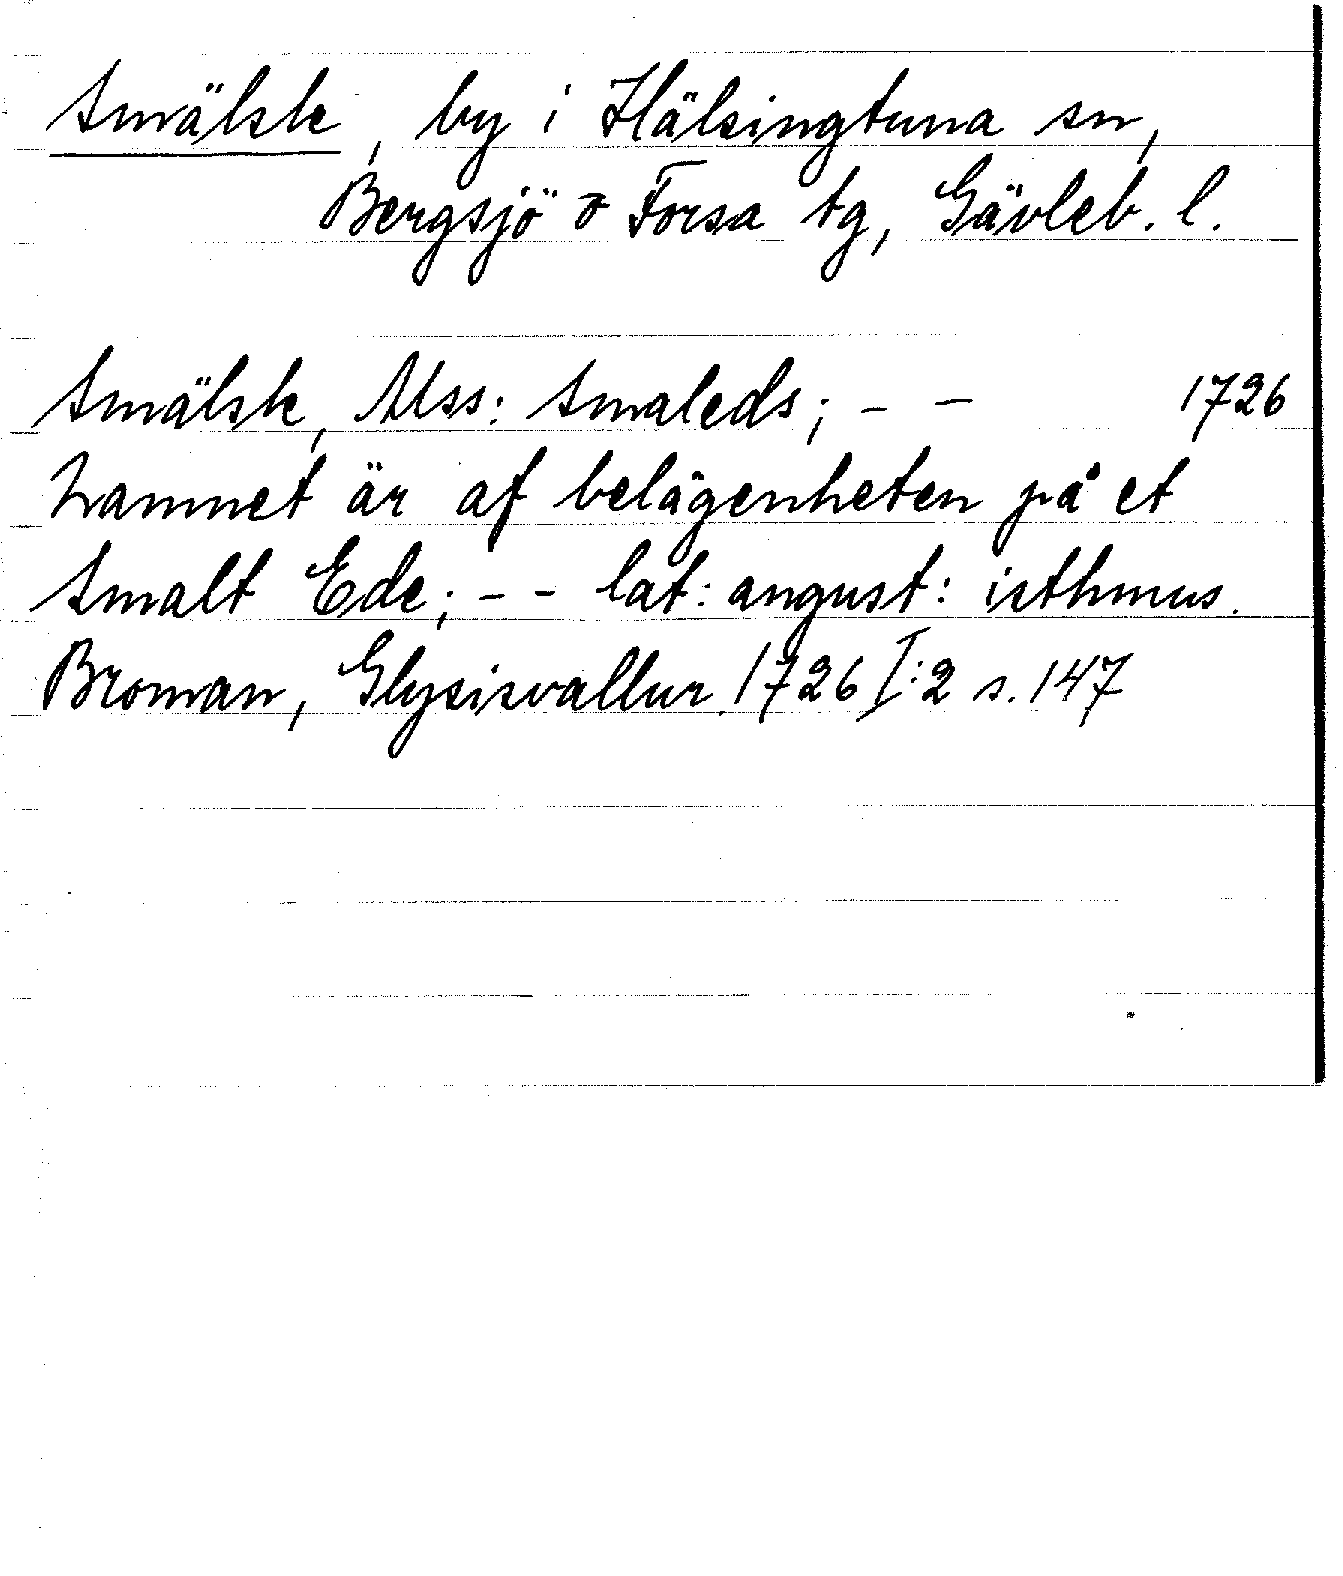 Smälsk, by i Hälsingtuna sn,
Bergsjö o Forsa tg, Gävleb. l.
Smälsk, Mss: Smaleds; - - 1726
Namnet är af belägenheten på et
Smalt Ede; - - lat: angust: isthmus.
Broman, Glysisvallur 1726 I:2 s. 147